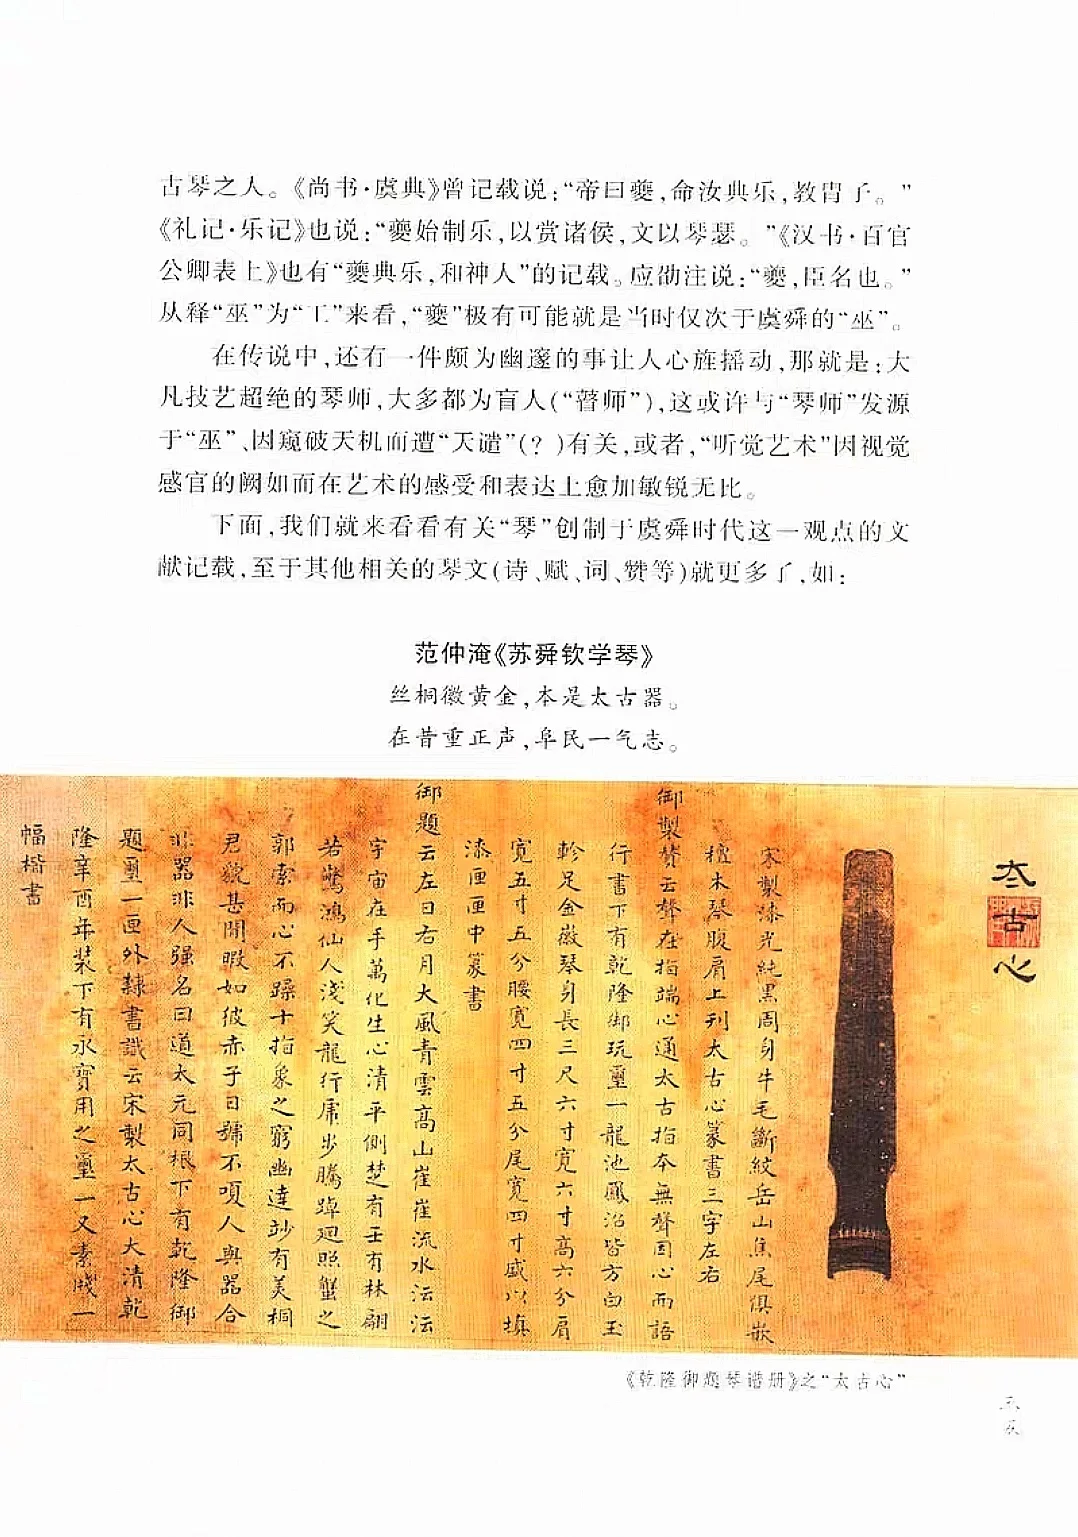 古琴之人。《尚书·虞典》曾记载说：“帝曰夔，命汝典乐，教胄子。”
《礼记·乐记》也说：“夔始制乐，以赏诸侯，文以琴瑟。”《汉书·百官
公卿表上》也有“夔典乐，和神人”的记载。应劭注说：“夔，臣名也。”
从释“巫”为“工”来看，“夔”极有可能就是当时仅次于虞舜的“巫”。
在传说中，还有一件颇为幽邃的事让人心旌摇动，那就是：大
凡技艺超绝的琴师，大多都为盲人(“瞽师”)，这或许与“琴师”发源
于“巫”、因窥破天机而遭“天谴”(？)有关，或者，“听觉艺术”因视觉
感官的阙如而在艺术的感受和表达上愈加敏锐无比。
下面，我们就来看看有关“琴”创制于虞舜时代这一观点的文
献记载，至于其他相关的琴文(诗、赋、词、赞等)就更多了，如：
范仲淹《苏舜钦学琴》
丝桐徽黄金，本是太古器。
在昔重正声，阜民一气志。
太古心
宋製漆光純黑周身牛毛斷紋岳山焦尾俱嵌
檀木琴腹肩上刊太古心篆書三字左右
御製贊云聲在指端心通太古指本無聲因心而語
行書下有乾隆御玩璽一龍池鳳沼皆方白玉
軫足金徽琴身長三尺六寸寬六寸高六分肩
寬五寸五分腰寬四寸五分尾寬四寸盛以填
漆匣匣中篆書
御題云左日右月大風青雲高山崔崔流水沄沄
宇宙在手萬化生心清平側楚有壬有林翩
若驚鴻仙人淺笑龍行虎步騰踔迴照蟹之
郭索而心不躁十指象之窮幽達妙有美桐
君貌甚閒暇如彼赤子日號不嗄人與器合
非器非人强名曰道太元同根下有乾隆御
題璽一匣外隸書識云宋製太古心大清乾
隆辛酉年装下有永寶用之璽一又素牋一
幅楷書
《乾隆御题琴谱册》之“太古心”